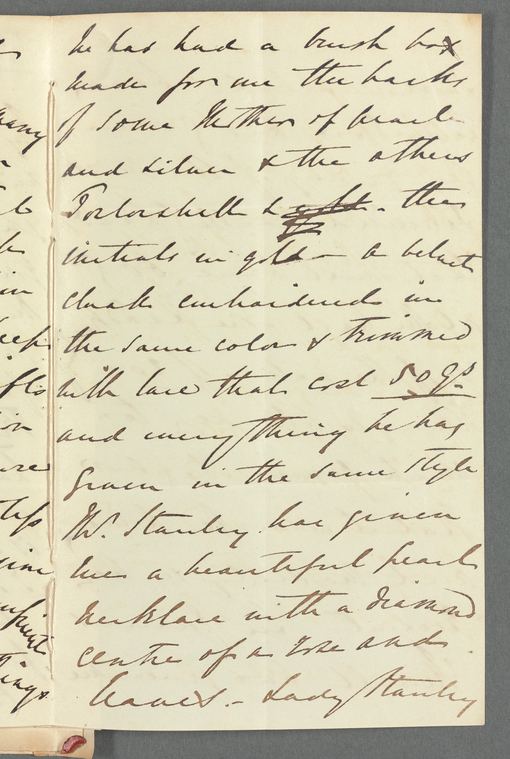 he has had a brush box
made for me the backs
of some Mother of pearl
and silver & the others
Tortorshell & gold - the
initials in gold - a velvet
cloak embroidered in
the same color & trimmed
with lace that cost 50 Gs
and everything he has
given in the same style
Mr. Stanley has given
me a beautiful pearl
necklace with a diamond
centre of a rose and
leaves - Lady Stanley